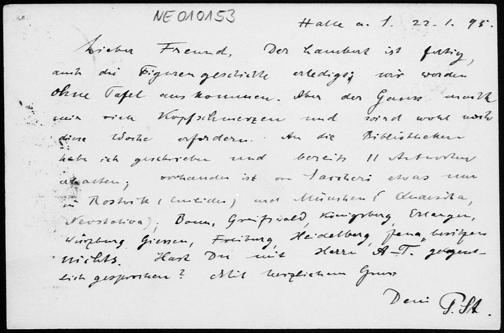 NE010153
Halle a. S. 22.1.95.
Lieber Freund, Der Lambert ist fertig,
auch die Figurengeschichte erledigt, wir werden
ohne Tafel auskommen. Aber der Gauss macht
mir viel Kopfschmerzen und wird wohl noch
diese Woche erfordern. An die Bibliotheken
habe ich geschrieben und bereits 11 Antworten
erhalten; vorhanden ist von Saccheri etwas nur
in Rostock (Euclides) und München (Quaesita,
Neostatica); Bonn, Greifswald, Königsberg, Erlangen,
Würzburg, Giessen, Freiburg, Heidelberg, Jena besitzen
nichts. Hast Du mit Herrn A-T. gelegent-
lich gesprochen? Mit herzlichem Gruss
Dein P. St.